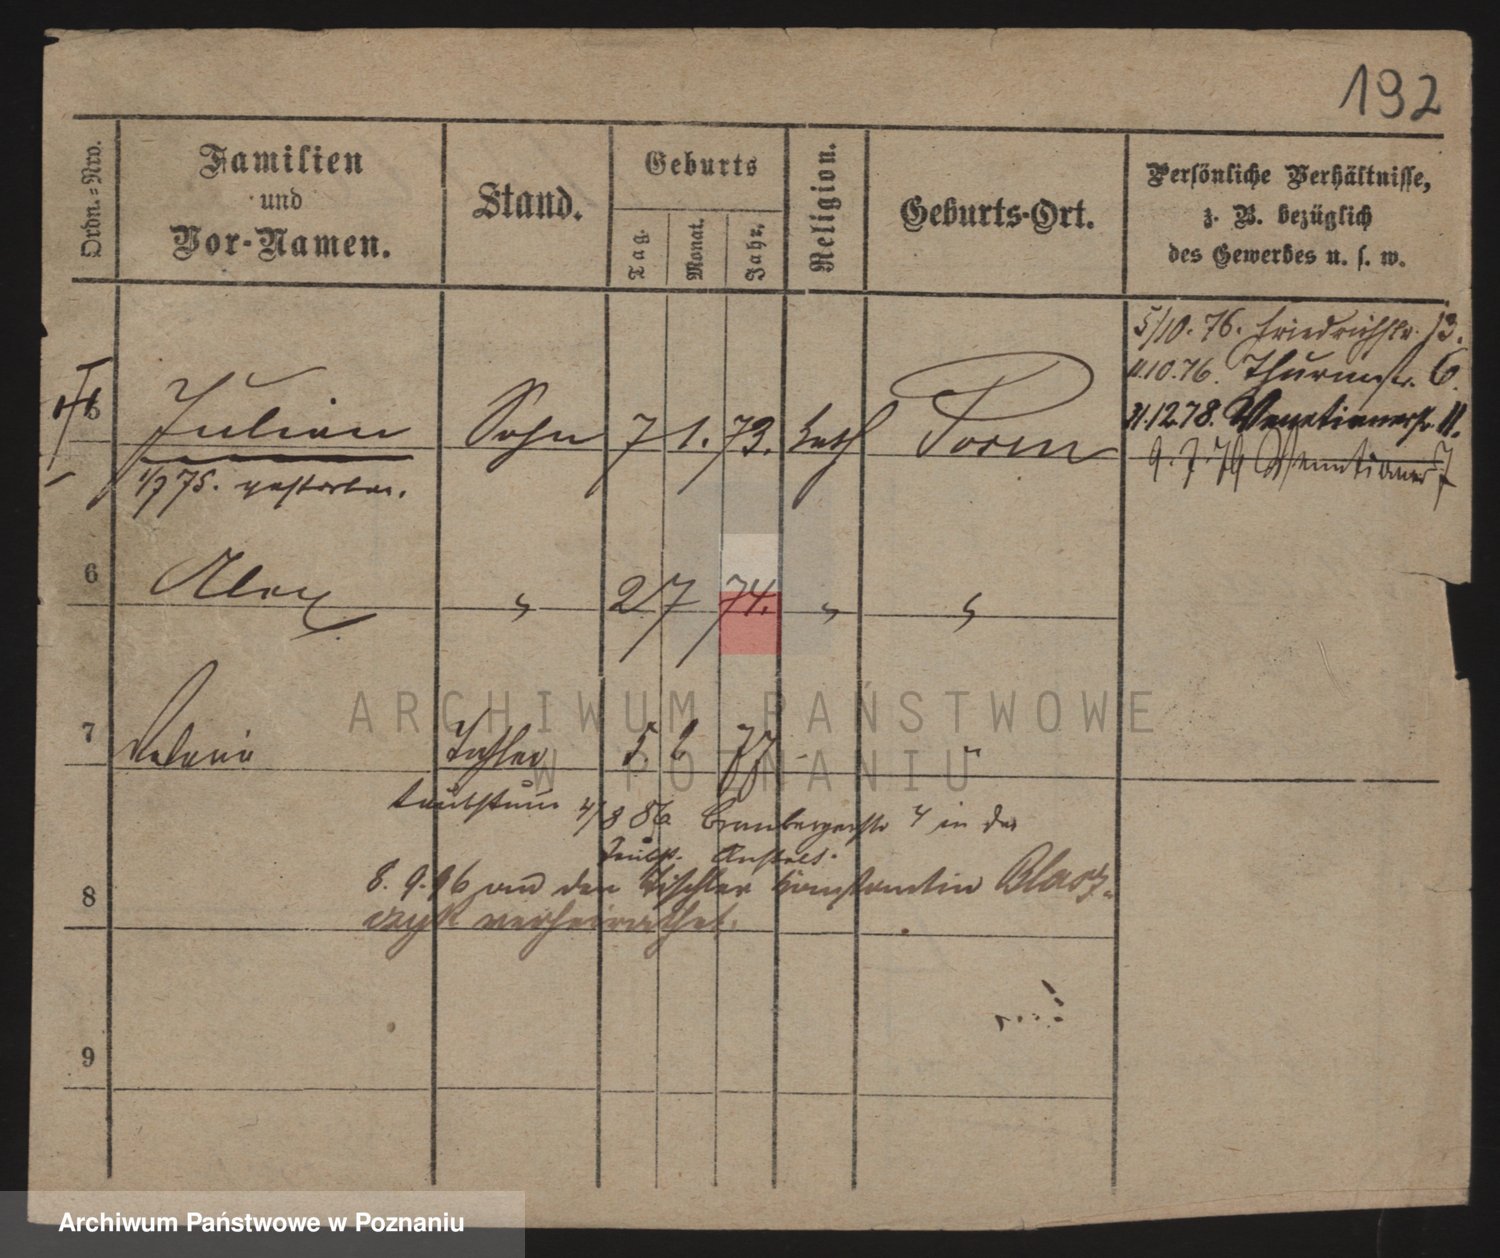 192
Ordn.-Nro.
Familien
und
Vor-Namen.
Stand.
Geburts
Tag.
Monat.
Jahr.
Religion.
Geburts-Ort.
Persönliche Verhältnisse,
z. B. bezüglich
des Gewerbes u. s. w.
5/10. 76. Friedrichstr. 13.
11.10.76. Thurmstr. 6.
31.12.78. Venetianerstr. 11.
9.7.79 Venetianerstr 7
5 Julian Sohn 7 1. 73. kath Posen
1/7 75. gestorben.
6 Alex " 2 7 74. " "
7 Tochter 5. 2 77 "
taubstumm 4/8 86 Brombergerstr 4 in der
Taubst. Anstalt.
8. 9. 96 mit dem Tischler Konstantin Blasz-
czyk verheirathet.
8
9
ARCHIWUM PAŃSTWOWE
W POZNANIU
Archiwum Państwowe w Poznaniu